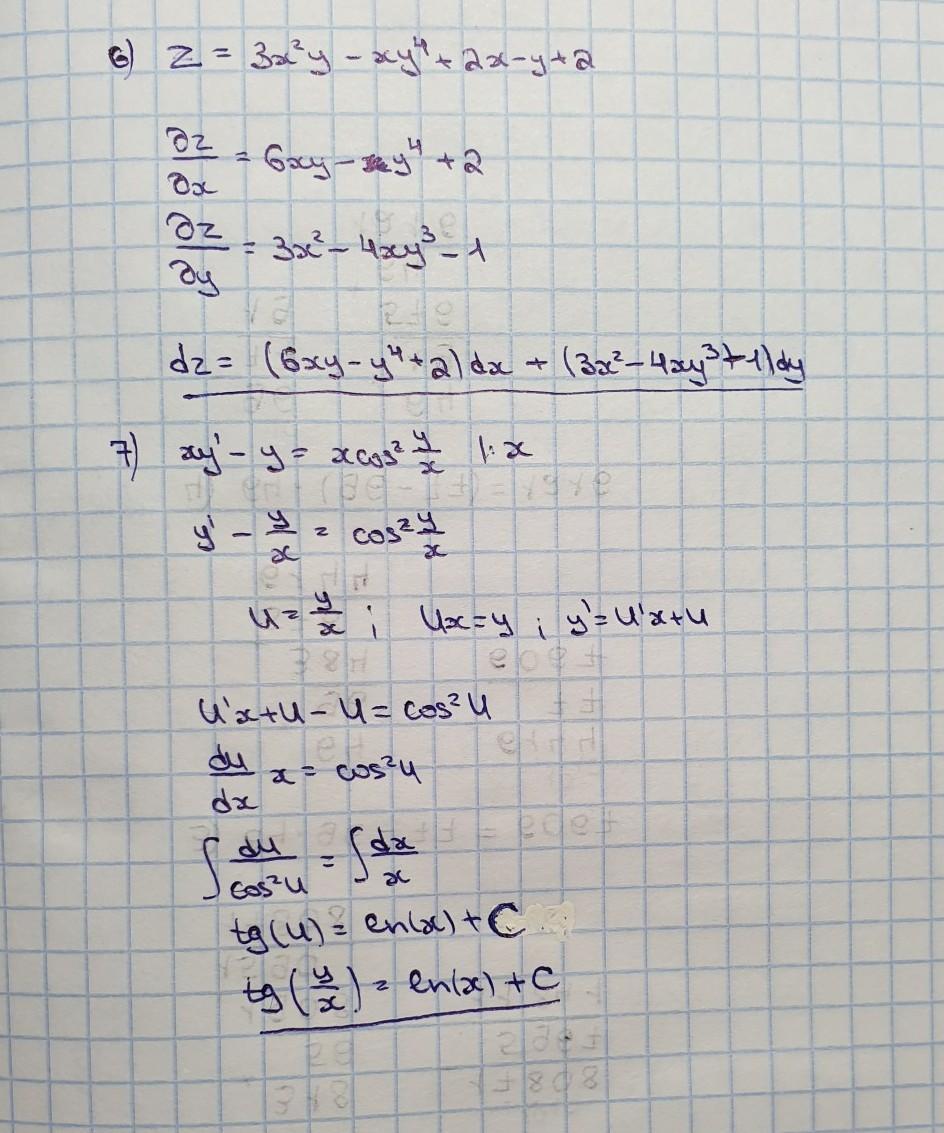 6) z = 3x²y - xy⁴ + 2x - y + 2
∂z/∂x = 6xy - y⁴ + 2
∂z/∂y = 3x² - 4xy³ - 1
dz = (6xy - y⁴ + 2)dx + (3x² - 4xy³ - 1)dy
7) xy' - y = x cos² y/x |: x
y' - y/x = cos² y/x
u = y/x ; ux = y ; y' = u'x + u
u'x + u - u = cos² u
du/dx x = cos² u
∫ du/cos² u = ∫ dx/x
tg(u) = ln(x) + C
tg(y/x) = ln(x) + C